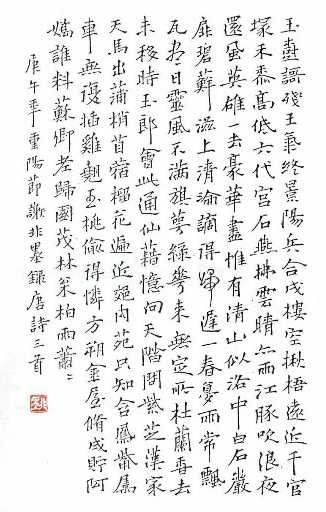 玉樹謌殘王氣終景陽兵合戍樓空楸梧遠近千官
塚禾黍高低六代宮石燕拂雲晴亦雨江豚吹浪夜
還風英雄一去豪華盡惟有青山似洛中白石巖
扉碧蘚滋上清淪謫得歸遲一春夢雨常飄
瓦盡日靈風不滿旗萼綠華來無定所杜蘭香去
未移時玉郎會此通仙藉憶向天階問紫芝漢家
天馬出蒲梢苜蓿榴花遍近郊内苑只知含鳳觜屬
車無復插雞翹玉桃偷得憐方朔金屋脩成貯阿
嬌誰料蘇卿老歸國茂林枀柏雨蕭〻
庚午年重陽節 非墨錄唐詩三首